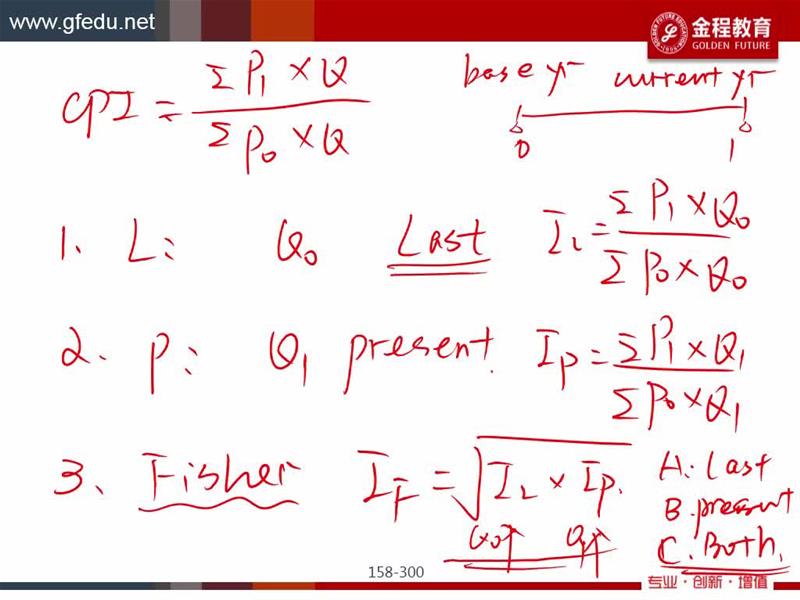 www.gfedu.net
金程教育
GOLDEN FUTURE
CPI = ΣP₁ × Q / ΣP₀ × Q
base yr current yr
0 1
1. L: Q₀ Last I_L = ΣP₁ × Q₀ / ΣP₀ × Q₀
2. P: Q₁ present. I_P = ΣP₁ × Q₁ / ΣP₀ × Q₁
3. Fisher I_F = √(I_L × I_P.)
A: Last
B. present
C. Both.
158-300
专业·创新·增值